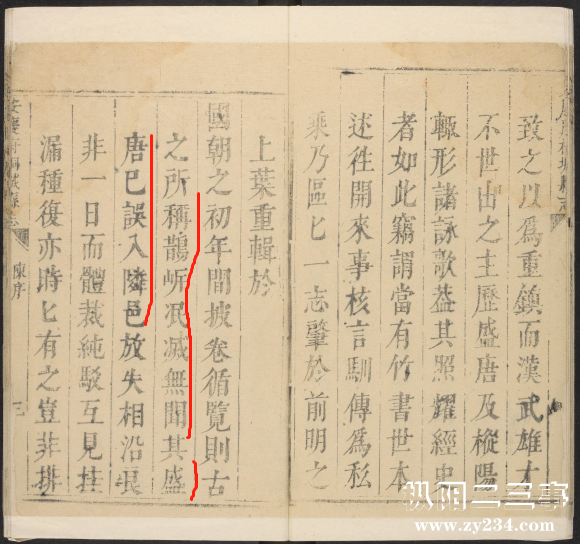 致之以爲重鎮而漢武雄才
不世出之主歷盛唐及樅陽
輒形諸詠歌葢其照耀經史
者如此竊謂當有竹書世本
述徃開來事核言馴傳爲私
乘乃區匕一志肇於前明之
上葉重輯於
國朝之初年間披卷循覽則古
之所稱鵲岍泯滅無聞其盛
唐已誤入隣邑放失相沿良
非一日而體裁純駁互見挂
漏種復亦時匕有之豈非排
安慶府桐城縣志
陳序
三
枞阳二三事
www.zy234.com